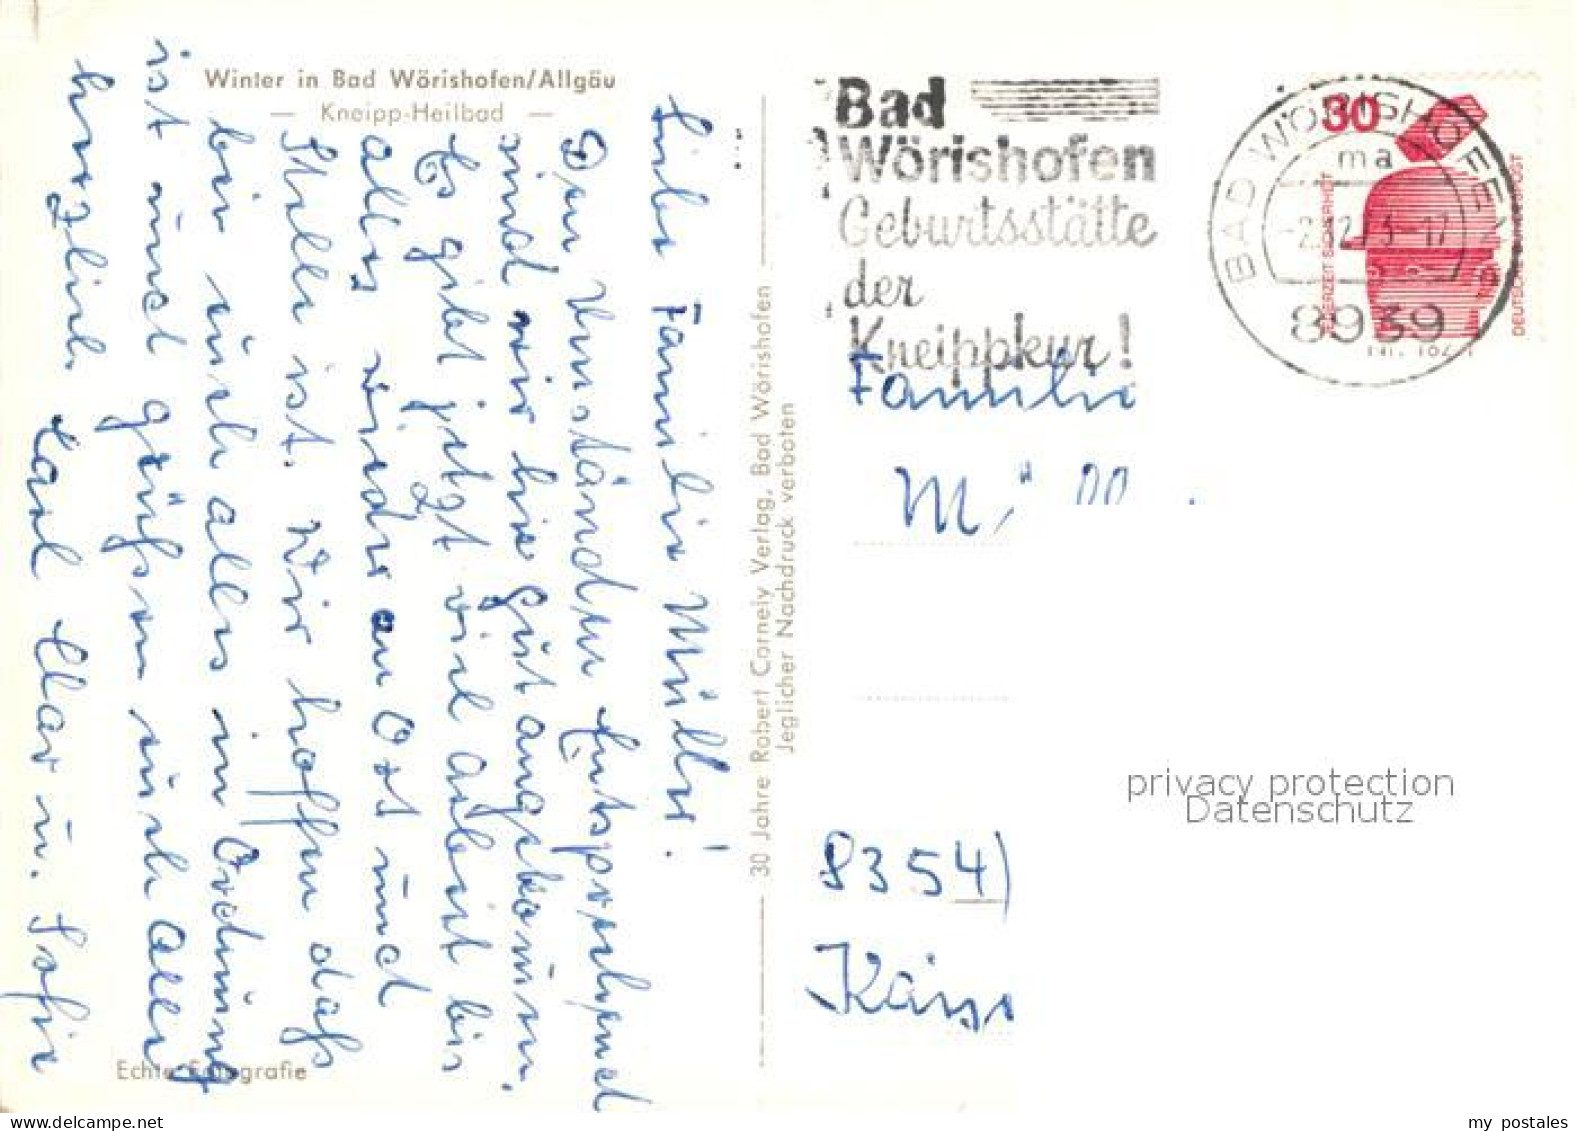 Winter in Bad Wörishofen/Allgäu
— Kneipp-Heilbad —
Liebe Familie Müller!
Den Umständen Entsprechend
sind wir hie gut angekommen.
Es gibt jetzt viel arbeit bis
alles wieder an Ort und
Stelle ist. Wir hoffen däss
bei euch alles in Ordnung
ist und grüssen euch alle
herzlich. Karl Klar u. Sofie
Echte Fotografie
30 Jahre Robert Cornely Verlag, Bad Wörishofen
Jeglicher Nachdruck verboten
Bad
Wörishofen
Geburtsstätte
der
Kneippkur!
BAD WÖRISHOFEN
ma
8939
30
JEDERZEIT SICHERHEIT
DEUTSCHE BUNDESPOST
Familie
8354)
privacy protection
Datenschutz
my postales